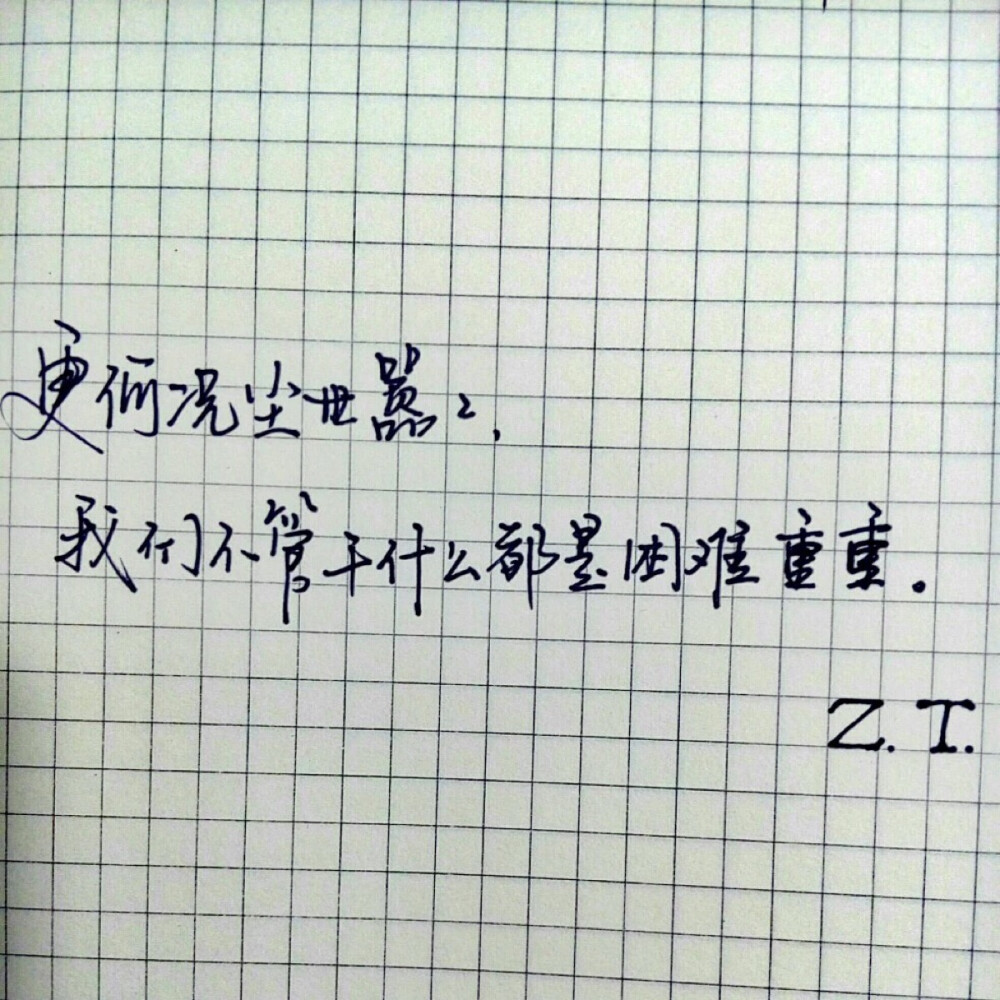 更何况尘世嚣々,
我们不管干什么都是困难重重。
Z.T.